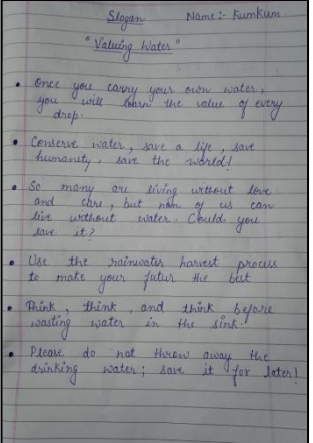 Slogan Name:- Kumkum.
"Valuing Water"
• Once you carry your own water,
you will learn the value of every
drop.
• Conserve water, save a life, save
humanity, save the world!
• So many are living without love
and care, but non of us can
live without water. Could you
save it?
• Use the rainwater harvest process
to make your futur the best
• Think, think, and think before
wasting water in the sink.
• Please do not throw away the
drinking water; save it for later!